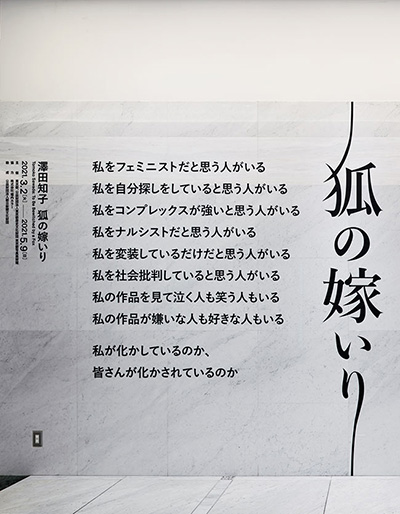 狐の嫁いり
私をフェミニストだと思う人がいる
私を自分探しをしていると思う人がいる
私をコンプレックスが強いと思う人がいる
私をナルシストだと思う人がいる
私を変装しているだけだと思う人がいる
私を社会批判していると思う人がいる
私の作品を見て泣く人も笑う人もいる
私の作品が嫌いな人も好きな人もいる
私が化かしているのか、
皆さんが化かされているのか
澤田知子 狐の嫁いり
2021.3.2(火)—2021.5.9(日)